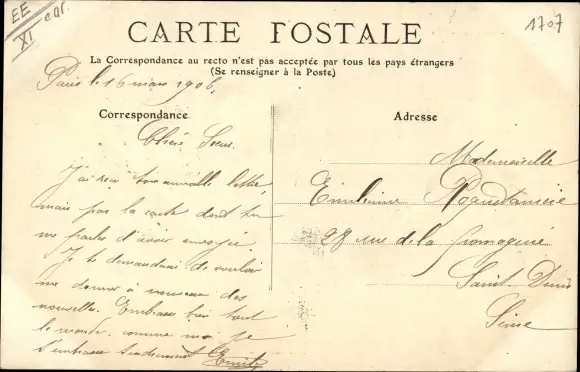 EE
XI
car.
1707
CARTE POSTALE
La Correspondance au recto n'est pas acceptée par tous les pays étrangers
(Se renseigner à la Poste)
Paris le 16 mars 1906.
Correspondance
Chère Soeur
J'ai reçu ton aimable lettre
mais pas la carte dont tu
me parles d'avoir envoyée.
Je te demanderai de vouloir
me donner à nouveau des
nouvelles. Embrasse bien tout
le monde comme moi je
t'embrasse tendrement
Adresse
Mademoiselle
28 rue de la
Saint Denis
Seine